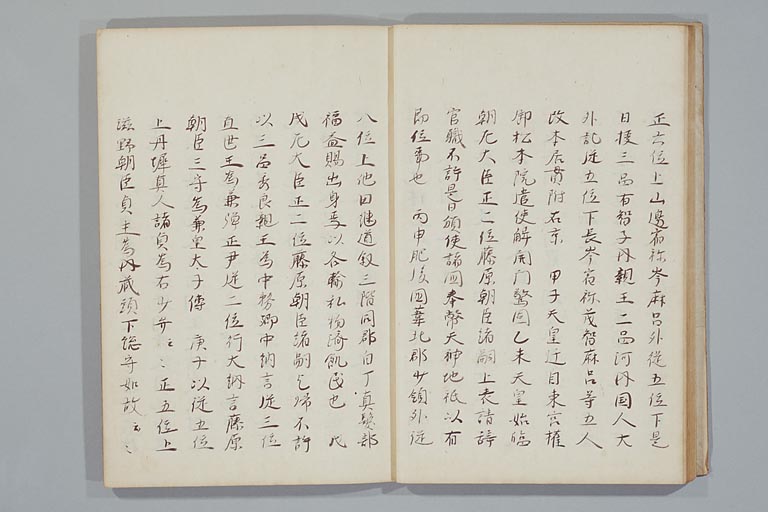 正六位上山邊宿祢岑麻呂外従五位下是
日授三品有智子内親王二品河内国人大
外記従五位下長岑宿祢茂智麻呂等五人
改本居貫附右京 甲子天皇近自東宮権
御松本院遣使解開門警固乙未天皇始臨
朝左大臣正二位藤原朝臣諸嗣上表請辞
官職不許是日頒使諸國奉幣天神地祇以有
即位事也 丙申肥後國葦北郡少領外従
八位上他田継道叙三階同郡白丁真髪部
福益賜出身焉以各輸私物済飢民也 戊
戌左大臣正二位藤原朝臣諸嗣乞帰不許
以三品秀良親王為中務卿中納言従三位
直世王為兼弾正尹従二位行大納言藤原
朝臣三守為兼皇太子傅 庚子以従五位
上丹墀真人諸貞為右少弁云〻正五位上
滋野朝臣貞主為内蔵頭下総守如故云〻